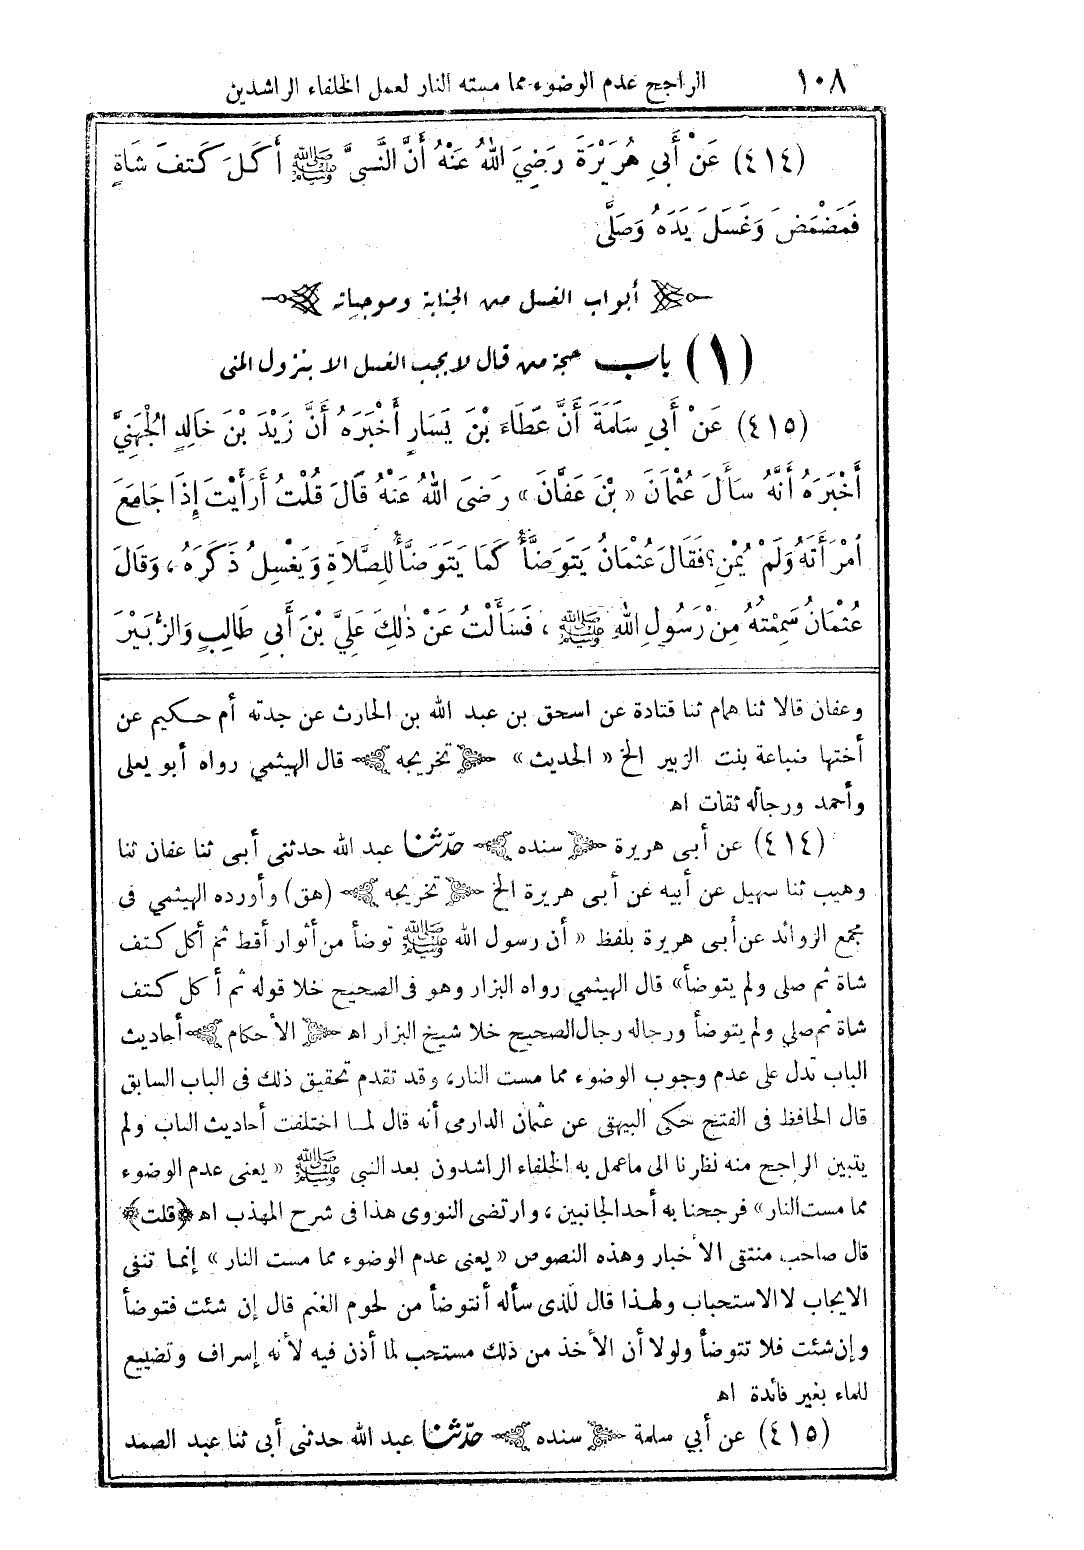 ١٠٨ الراجح عدم الوضوء مما مسته النار لعمل الخلفاء الراشدين
(٤١٤) عَنْ أَبِي هُرَيْرَةَ رَضِيَ اللهُ عَنْهُ أَنَّ النَّبِيَّ ﷺ أَكَلَ كَتِفَ شَاةٍ
فَمَضْمَضَ وَغَسَلَ يَدَهُ وَصَلَّى
أبواب الغسل من الجنابة وموجباته
(١) باب حجة من قال لا يجب الغسل الا بنزول المنى
(٤١٥) عَنْ أَبِي سَلَمَةَ أَنَّ عَطَاءَ بْنَ يَسَارٍ أَخْبَرَهُ أَنَّ زَيْدَ بْنَ خَالِدٍ الْجُهَنِيَّ
أَخْبَرَهُ أَنَّهُ سَأَلَ عُثْمَانَ « بْنَ عَفَّانَ » رَضِيَ اللهُ عَنْهُ قَالَ قُلْتُ أَرَأَيْتَ إِذَا جَامَعَ
امْرَأَتَهُ وَلَمْ يُمْنِ؟ فَقَالَ عُثْمَانُ يَتَوَضَّأُ كَمَا يَتَوَضَّأُ لِلصَّلَاةِ وَيَغْسِلُ ذَكَرَهُ ، وَقَالَ
عُثْمَانُ سَمِعْتُهُ مِنْ رَسُولِ اللهِ ﷺ ، فَسَأَلْتُ عَنْ ذٰلِكَ عَلِيَّ بْنَ أَبِي طَالِبٍ وَالزُّبَيْرَ
وعفان قالا ثنا همام ثنا قتادة عن اسحق بن عبد الله بن الحارث عن جدته أم حكيم عن
أختها ضباعة بنت الزبير الخ « الحديث » تخريجه قال الهيثمي رواه أبو يعلى
وأحمد ورجاله ثقات اه
(٤١٤) عن أبى هريرة سنده حدّثنا عبد الله حدثنى أبى ثنا عفان ثنا
وهيب ثنا سهيل عن أبيه عن أبى هريرة الخ تخريجه (هق) وأورده الهيثمي فى
مجمع الزوائد عن أبى هريرة بلفظ « أن رسول الله ﷺ توضأ من أثوار أقط ثم أكل كتف
شاة ثم صلى ولم يتوضأ» قال الهيثمي رواه البزار وهو فى الصحيح خلا قوله ثم أكل كتف
شاة ثم صلي ولم يتوضأ ورجاله رجال الصحيح خلا شيخ البزار اه الأحكام أحاديث
الباب تدل على عدم وجوب الوضوء مما مست النار، وقد تقدم تحقيق ذلك فى الباب السابق
قال الحافظ فى الفتح حكى البيهقى عن عثمان الدارمى أنه قال لما اختلفت أحاديث الباب ولم
يتبين الراجح منه نظرنا الى ما عمل به الخلفاء الراشدون بعد النبى ﷺ « يعنى عدم الوضوء
مما مست النار» فرجحنا به أحد الجانبين ، وارتضى النووى هذا فى شرح المهذب اه ﴿قلت﴾
قال صاحب منتقى الأخبار وهذه النصوص « يعنى عدم الوضوء مما مست النار » إنما تنفى
الايجاب لا الاستحباب ولهذا قال للذى سأله أنتوضأ من لحوم الغنم قال إن شئت فتوضأ
وإن شئت فلا تتوضأ ولولا أن الأخذ من ذلك مستحب لما أذن فيه لأنه إسراف وتضييع
للماء بغير فائدة اه
(٤١٥) عن أبي سلمة سنده حدّثنا عبد الله حدثنى أبى ثنا عبد الصمد